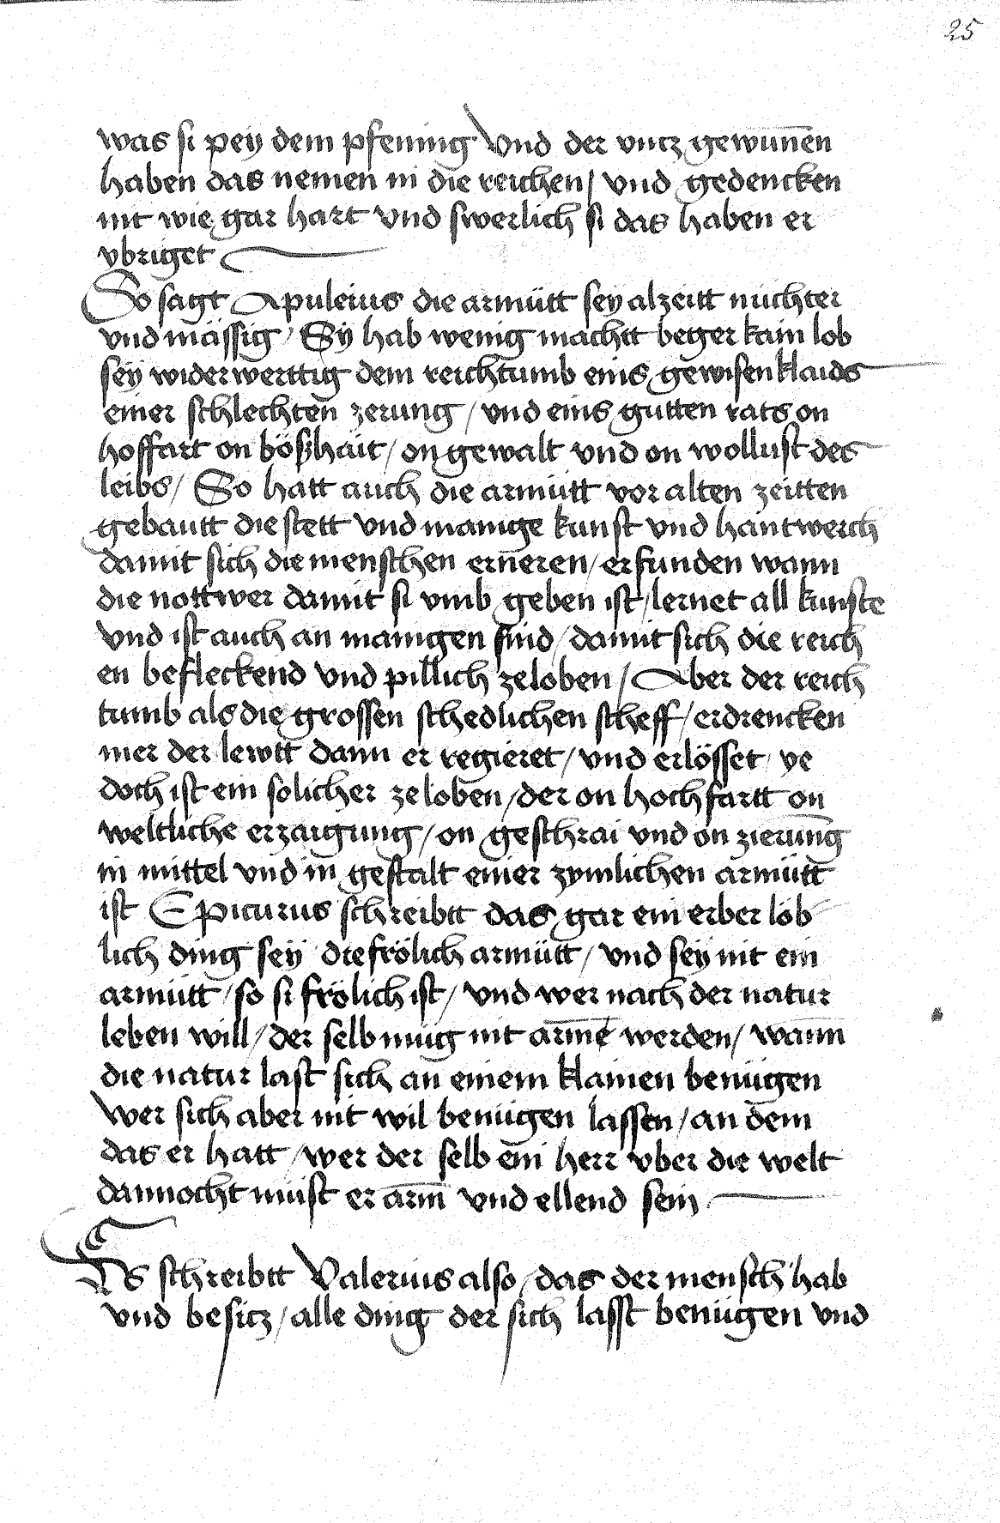 25
was si pey dem pfening Vnd der vntz gewunnen
haben das nemen in die reichen / vnd gedencken
nit wie gar hart vnd swerlich si das haben er
vbriget
So sagt Apuleius die armütt sey alzeitt nüchter
vnd mässig / Sÿ hab wenig machtt beger kain lob
seÿ widerwerttig dem reichtumb einis gewisen klaids
einer schlechten zerung / vnd einis gutten rats on
hoffart on bößhäit / on gewalt vnd on wollust des
leibs / So hatt auch die armütt vor alten zeitten
gebautt die stett vnd manige kunst vnd hantwerch
damit sich die menschen erneren / erfunden wann
die nottwer damit si vmb geben ist / lernet all kunste
Vnd ist auch an manigen sind / damit sich die reich
en befleckend vnd pillich zeloben / Aber der reich
tumb als die grossen schedlichen scheff / erdrencken
mer der lewtt dann er regieret / vnd erlösset / ye
doch ist ein solicher zeloben / der on hochfartt on
weltliche erzaigung / on geschrai vnd on zierung
in mittel vnd in gestalt einer zymlichen armütt
ist Epicurus schreibtt das gar ein erber löb
lich ding seÿ die frölich armütt / vnd sey nit ein
armütt / so si frölich ist / vnd wer nach der natur
leben will / der selb müg nit arme werden / wann
die natur last sich an einem klainen benügen
Wer sich aber nit wil benügen lassen / an dem
das er hatt / wer der selb ein herr vber die welt
dannocht müist er arm vnd ellend sein
Es schreibtt Valerius also / das der mensch hab
vnd besitz / alle ding der sich lasst benügen vnd